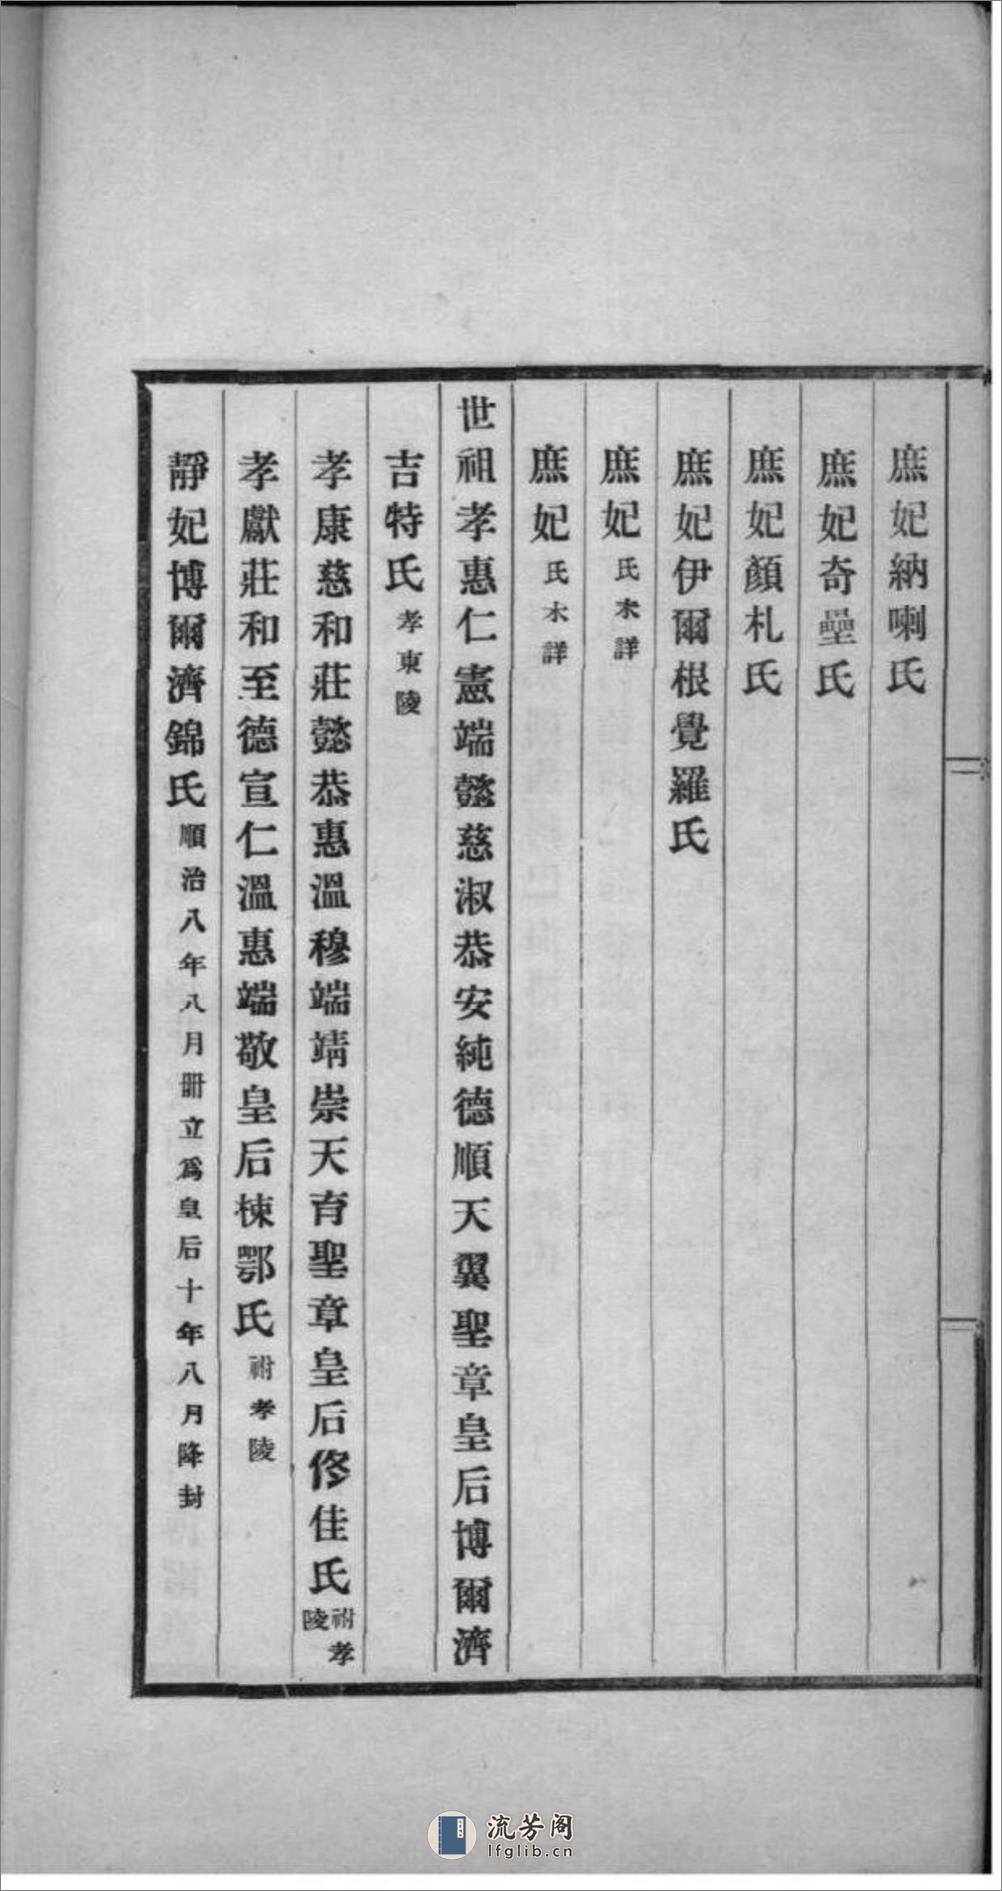 庶妃納喇氏
庶妃奇壘氏
庶妃顏札氏
庶妃伊爾根覺羅氏
庶妃氏未詳
庶妃氏未詳
世祖孝惠仁憲端懿慈淑恭安純德順天翼聖章皇后博爾濟
吉特氏孝東陵
孝康慈和莊懿恭惠溫穆端靖崇天育聖章皇后佟佳氏祔孝陵
孝獻莊和至德宣仁溫惠端敬皇后棟鄂氏祔孝陵
靜妃博爾濟錦氏順治八年八月冊立爲皇后十年八月降封
流芳阁
lfglib.cn